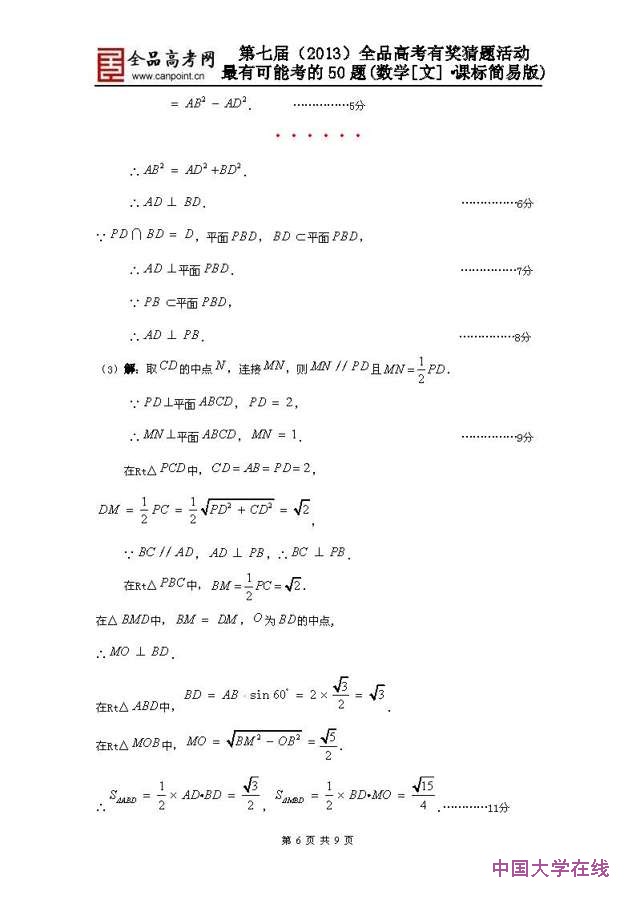 全品高考网
www.canpoint.cn
第七届（2013）全品高考有奖猜题活动
最有可能考的50题(数学[文]·课标简易版)
= AB² − AD². ……………5分
∴ AB² = AD² +BD².
∴ AD ⊥ BD. ……………6分
∵ PD ∩ BD = D, 平面 PBD, BD ⊂平面 PBD,
∴ AD ⊥平面 PBD. ……………7分
∵ PB ⊂平面 PBD,
∴ AD ⊥ PB. ……………8分
（3）解：取 CD 的中点 N，连接 MN，则 MN // PD 且 MN = 1/2 PD.
∵ PD ⊥平面 ABCD, PD = 2,
∴ MN ⊥平面 ABCD, MN = 1. ……………9分
在Rt△ PCD 中, CD = AB = PD = 2,
DM = 1/2 PC = 1/2 √(PD² + CD²) = √2,
∵ BC // AD, AD ⊥ PB, ∴ BC ⊥ PB.
在Rt△ PBC 中, BM = 1/2 PC = √2.
在△ BMD 中, BM = DM, O 为 BD 的中点,
∴ MO ⊥ BD.
在Rt△ ABD 中, BD = AB · sin 60° = 2 × √3/2 = √3.
在Rt△ MOB 中, MO = √(BM² − OB²) = √5/2.
∴ S△ABD = 1/2 × AD•BD = √3/2, S△MBD = 1/2 × BD•MO = √15/4. …………11分
第 6 页 共 9 页
中国大学在线